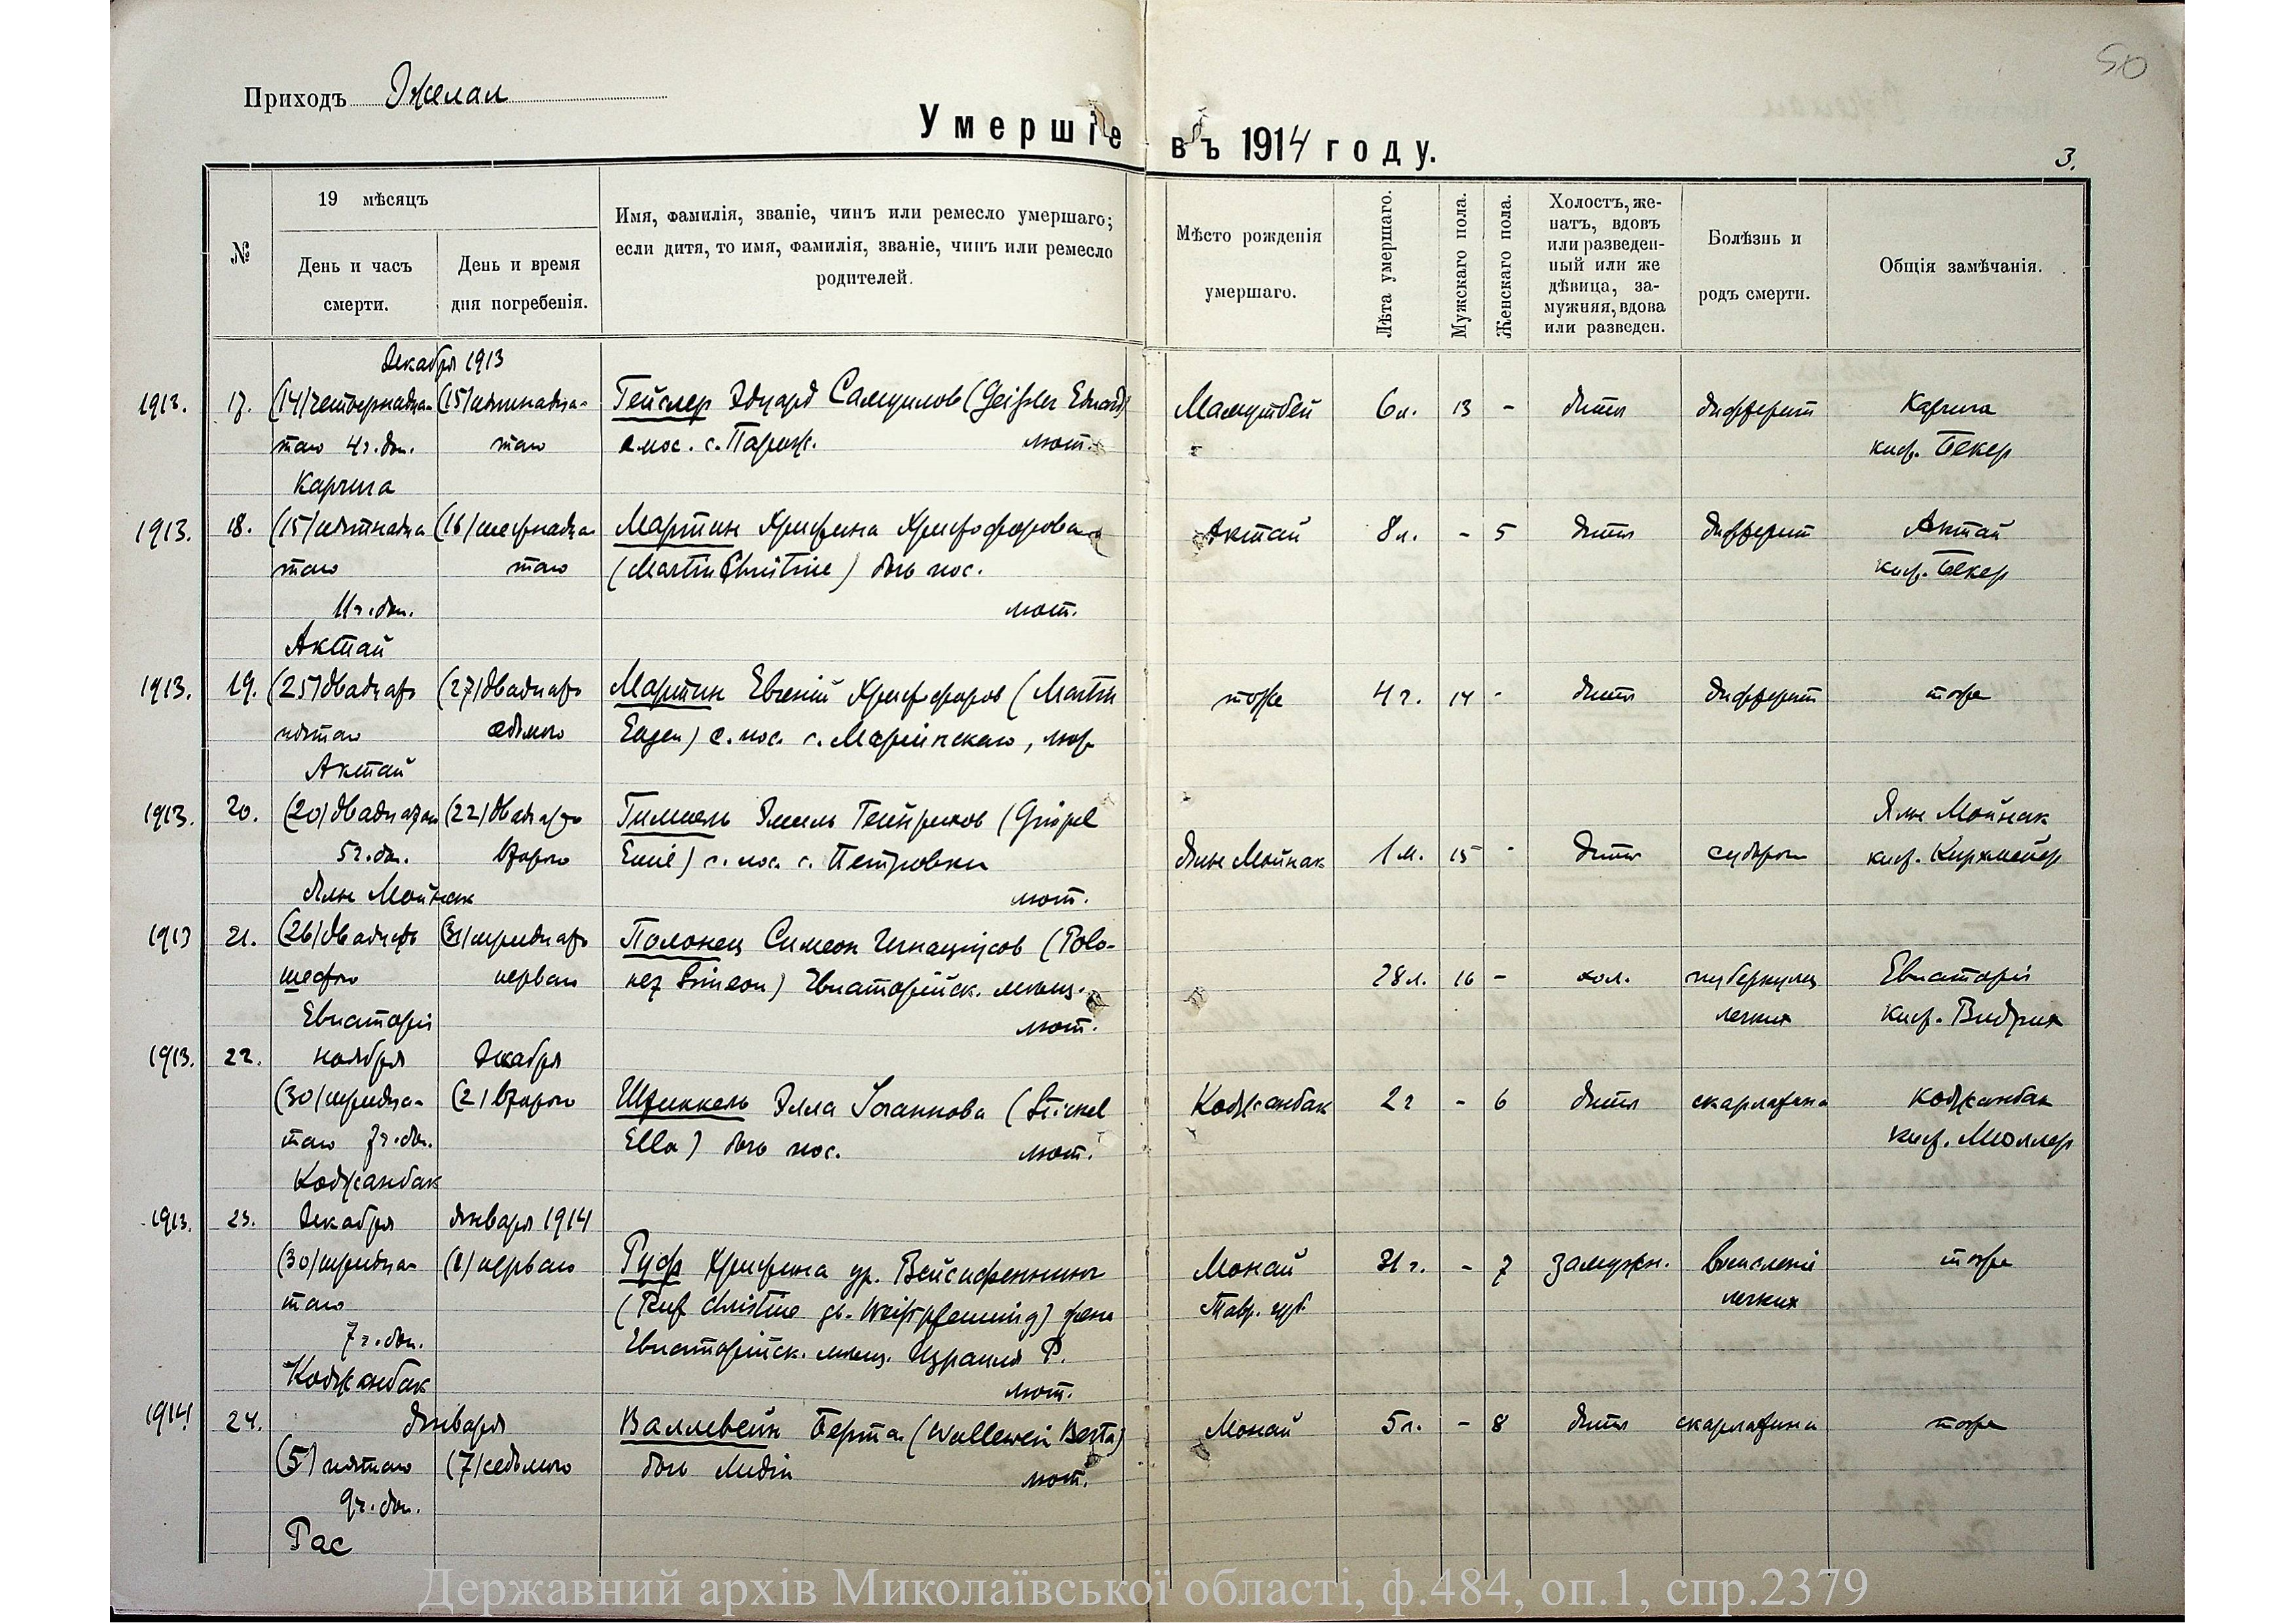 50
Приходъ Джелал
Умершіе въ 1914 году.
3.
№
19 мѣсяцъ
День и часъ смерти.
День и время дня погребенія.
Имя, фамилія, званіе, чинъ или ремесло умершаго;
если дитя, то имя, фамилія, званіе, чинъ или ремесло
родителей.
Мѣсто рожденія
умершаго.
Лѣта умершаго.
Мужскаго пола.
Женскаго пола.
Холостъ, же-
натъ, вдовъ
или разведен-
ный или же
дѣвица, за-
мужняя, вдова
или разведен.
Болѣзнь и
родъ смерти.
Общія замѣчанія.
Декабря 1913
1913. 17. (14) четвернадца- (15) пятнадца- Гейслер Эдуард Самуилов (Geißler Eduard) Мамутбей 6 л. 13 - дитя дифферит Карчига
таго 4 ч. дн. таго с. пос. с. Париж. лют. кист. Бекер
Карчига
1913. 18. (15) пятнадца (16) шестнадца Мартин Христина Христофорова Актай 8 л. - 5 дитя дифферит Актай
таго таго (Martin Christine) дочь пос. кист. Бекер
11 ч. дн. лют.
Актай
1913. 19. (25) двадцать (27) двадцать Мартин Евгений Христофоров (Martin тоже 4 г. 14 - дитя дифферит тоже
пятаго седьмого Eugen) с. пос. с. Мариинскаго, лют.
Актай
1913. 20. (20) двадцатаго (22) двадцать Гимпель Эмиль Гейнрихов (Gimpel Ялы Мойнак
5 ч. дн. второго Emil) с. пос. с. Петровки Ялы Мойнак 1 м. 15 - дитя судороги кист. Кирхмейер
Ялы Мойнак лют.
1913 21. (26) двадцать (31) тридцать Полонец Симеон Игнациусов (Polo-
шестого перваго nez Simeon) Евпаторийск. мещ. 28 л. 16 - хол. туберкулез Евпаторія
Евпаторія лют. легких кист. Видрих
1913. 22. ноября Декабря
(30) тридца- (2) второго Штиккель Элла Иоганнова (Stickel Коджанбак 2 г - 6 дитя скарлатина Коджанбак
таго 7 ч. дн. Ella) дочь пос. лют. кист. Мюллер
Коджанбак
1913. 23. Декабря Января 1914
(30) тридца- (1) перваго Руф Христина ур. Вейспфеннинг Монай 31 г. - 7 замужн. воспаленіе тоже
таго (Ruf Christine gb. Weißpfenning) жена Тавр. губ. легких
7 ч. дн. Евпаторійск. мещ. Израиля Р.
Коджанбак лют.
1914 24. Января Валлевейн Берта (Wallewein Berta) Монай 5 л. - 8 дитя скарлатина тоже
(5) пятаго (7) седьмого дочь Лидіи лют.
9 ч. дн.
Рас
Державний архів Миколаївської області, ф.484, оп.1, спр.2379